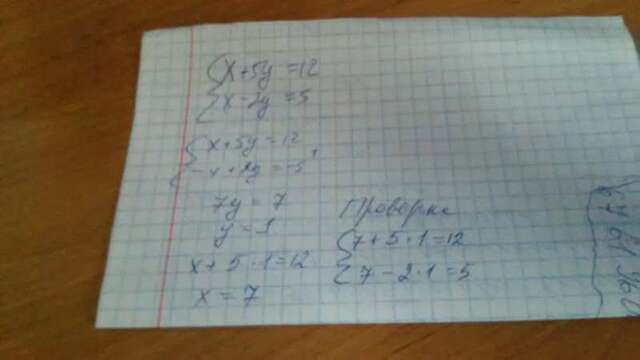 x+5y=12
x-2y=5
x+5y=12
-x+2y=-5
7y=7
y=1
x+5·1=12
x=7
Проверка
7+5·1=12
7-2·1=5